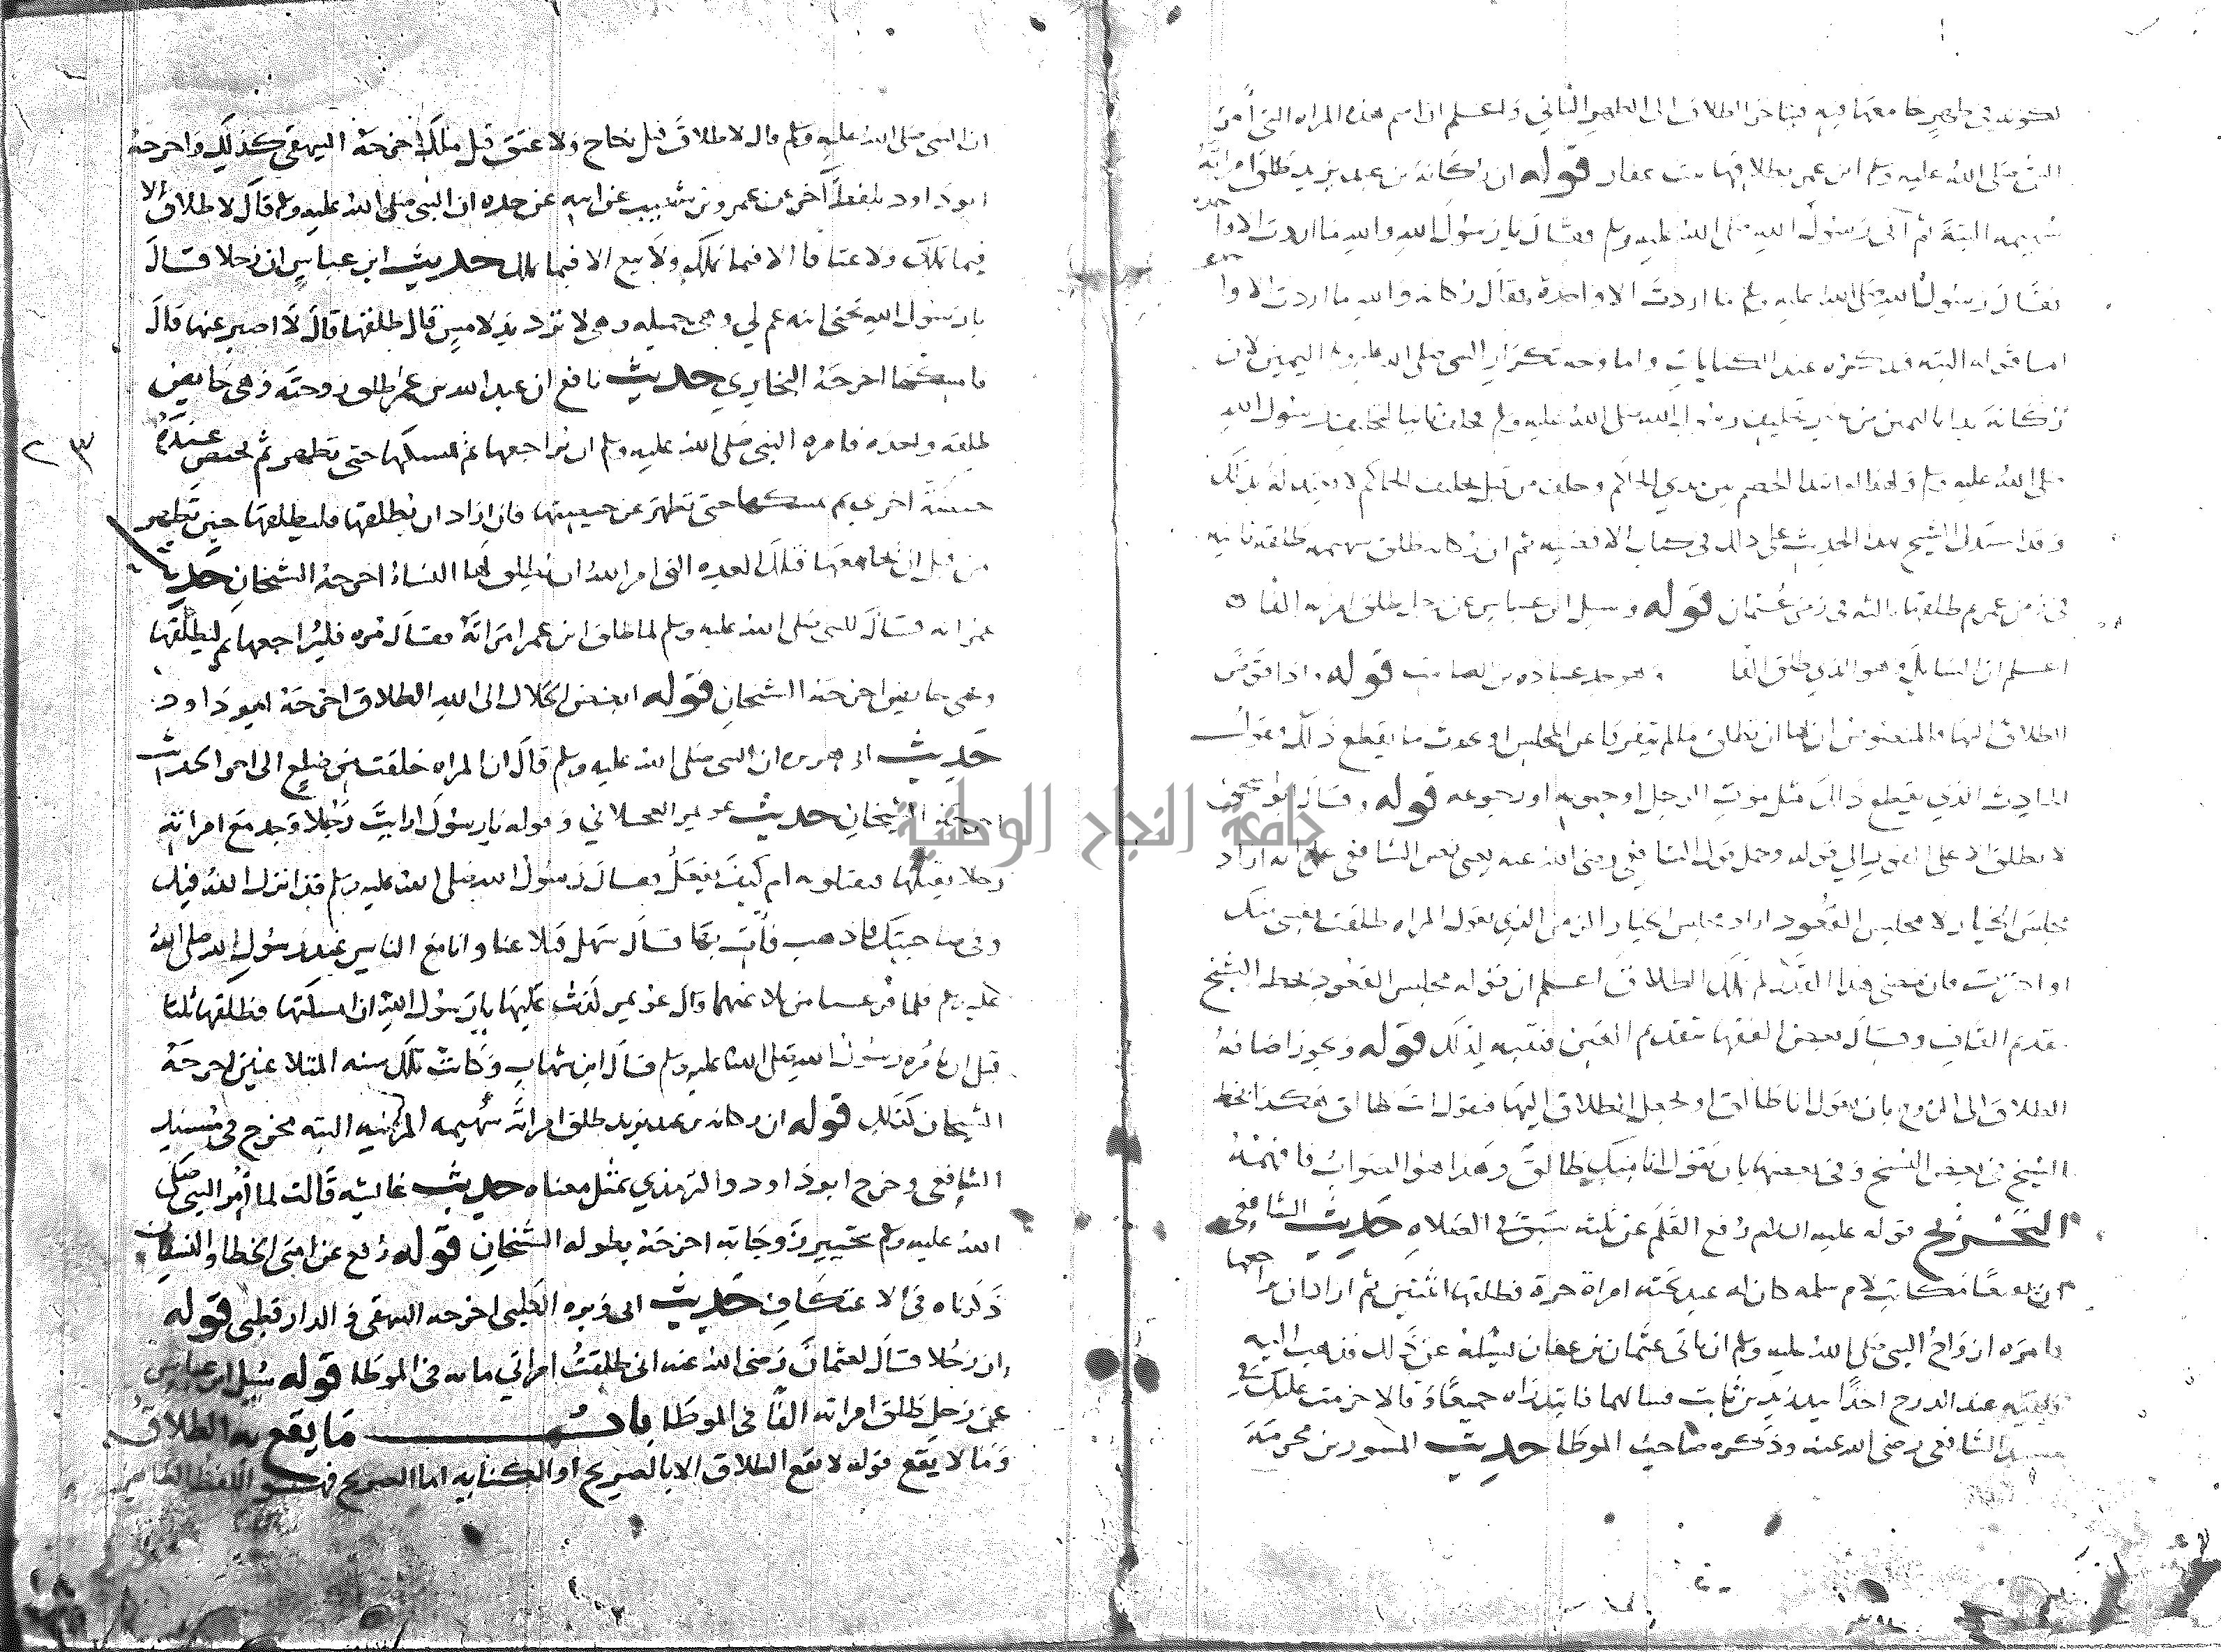 لكونه في طهر جامعها فيه فيتأخر الطلاق الى الطهر الثاني واعلم ان اسم هذه المراه التي أمر
النبي صلى الله عليه وسلم ابن عمر بطلاقها بنت عفار قوله ان ركانة بن عبد يزيد طلق امراته
سهيمه البتة ثم أتى رسول الله صلى الله عليه وسلم فقال يا رسول الله والله ما اردت الا واحده
فقال رسول الله صلى الله عليه وسلم ما اردت الا واحدة فقال ركانه والله ما اردت الا وا
اما قوله البته فقد ذكره عند الكنايات واما وجه تكرار النبي صلى الله عليه وسلم اليمين لان
ركانة بدا باليمين من غير تحليف رسول الله صلى الله عليه وسلم فحلف ثانيا لتحليف رسول الله
صلى الله عليه وسلم الخصم بين يدي الحاكم وحلف من قبل تحليف الحاكم لا يعتد له بذلك
وقد استدل الشيخ بهذا الحديث على ذلك في كتاب الاقضيه ثم ان ركانه طلق سهيمه طلقة ثانيه
في زمن عمر ثم طلقها الثالثه في زمن عثمان قوله وسيل ابن عباس عن رجل طلق امراته الفا
اعلم ان السايل هو الذي طلق الفا وهو جد عباده بن الصامت قوله واذا فوض
الطلاق اليها فالمنصوص ان لها ان تطلق ما لم يتفرقا عن المجلس او يحدث ما يقطع ذلك
الحادث الذي يقطع ذلك مثل موت الرجل او جنونه او رجوعه قوله وقال ابو اسحق
لا تطلق الا على الفور الى قوله وحمل قول الشافعي رضي الله عنه يعني نص الشافعي على انه اراد
مجلس الخيار لا مجلس القعود اراد مجلس الخيار الزمن الذي تقول المراه طلقت نفسي منك
او اخترت فان مضى هذا القدر لم تملك الطلاق اعلم ان قوله مجلس القعود بخط الشيخ
بقدم القاف وقال بعض الفقها بتقديم العين فتنبه لذلك قوله ويجوز اضافة
الطلاق الى الزوج بان يقول انا طالق او تجعل الطلاق اليها فتقول انت طالق هكذا بخط
الشيخ في بعض النسخ وفي بعضها بان يقول انا منك طالق وهذا هو الصواب فافهمه
التخريج قوله عليه السلام رفع القلم عن ثلثه سبق في الصلاه حديث الشافعي
ان نفيعا مكاتب لام سلمه كان له عبد تحته امراة حرة فطلقها اثنتين ثم اراد ان يراجعها
فامره ازواج النبي صلى الله عليه وسلم ان ياتي عثمان بن عفان ليسئله عن ذلك فذهب اليه
فلقيه عند الدرج اخذا بيد زيد بن ثابت فسالهما فابتدراه جميعا وقالا حرمت عليك
مسند الشافعي رضي الله عنه وذكره صاحب الموطا حديث المسور بن مخرمة
ان النبي صلى الله عليه وسلم قال لا طلاق قبل نكاح ولا عتق قبل ملك اخرجه البيهقي كذلك واخرجه
ابو داود بلفظ آخر عن عمرو بن شعيب عن ابيه عن جده ان النبي صلى الله عليه وسلم قال لا طلاق الا
فيما تملك ولا عتاقا الا فيما تملك ولا بيع الا فيما تملك حديث ابن عباس ان رجلا قال
يا رسول الله تحتي ابنه عم لي وهي جميله وهي لا ترد يد لامس قال طلقها قال لا اصبر عنها قال
فامسكها اخرجه البخاري حديث نافع ان عبد الله بن عمر طلق زوجته وهي حايض
طلقه واحده فامره النبي صلى الله عليه وسلم ان يراجعها ثم يمسكها حتى تطهر ثم تحيض عنده
٢٣
حيضة اخرى ثم يمسكها حتى تطهر من حيضتها فان اراد ان يطلقها فليطلقها حين تطهر
من قبل ان يجامعها فتلك العده التي امر الله ان تطلق لها النساء اخرجه الشيخان حديث
عمر انه قال للنبي صلى الله عليه وسلم لما طلق ابن عمر امراته فقال مره فليراجعها ثم ليطلقها
وهي حايض اخرجه الشيخان قوله ابغض الحلال الى الله الطلاق اخرجه ابو داود
حديث ابي هريره ان النبي صلى الله عليه وسلم قال ان المراه خلقت من ضلع الى اخر الحديث
اخرجه الشيخان حديث عويمر العجلاني وقوله يا رسول ارايت رجلا وجد مع امراته
رجلا يقتله فيقتلونه ام كيف يفعل فقال رسول الله صلى الله عليه وسلم قد انزل الله فيك
وفي صاحبتك فاذهب فأت بها قال سهل فتلاعنا وانا مع الناس عند رسول الله صلى الله
عليه وسلم فلما فرغا من تلاعنهما قال عويمر كذبت عليها يا رسول الله ان امسكتها فطلقها ثلثا
قبل ان يامره رسول الله صلى الله عليه وسلم قال ابن شهاب وكانت تلك سنه المتلاعنين اخرجه
الشيخان كذلك قوله ان ركانه بن عبد يزيد طلق امراته سهيمه المزنيه البته مخرج في مسند
الشافعي وخرج ابو داود والترمذي بمثل معناه حديث عائشه قالت لما أمر النبي صلى
الله عليه وسلم بتخيير زوجاته اخرجه بطوله الشيخان قوله رفع عن امتي الخطا والنسيان
ذكرناه في الاعتكاف حديث اخرجه البيهقي والدارقطني قوله
ان رجلا قال لعثمان رضي الله عنه اني طلقت امراتي مائه في الموطا قوله سيل ابن عباس
عن رجل طلق امراته الفا في الموطا باب ما يقع به الطلاق
وما لا يقع قوله لا يقع الطلاق الا بالصريح او الكنايه اما الصريح فهو اللفظ
جامعة النجاح الوطنية